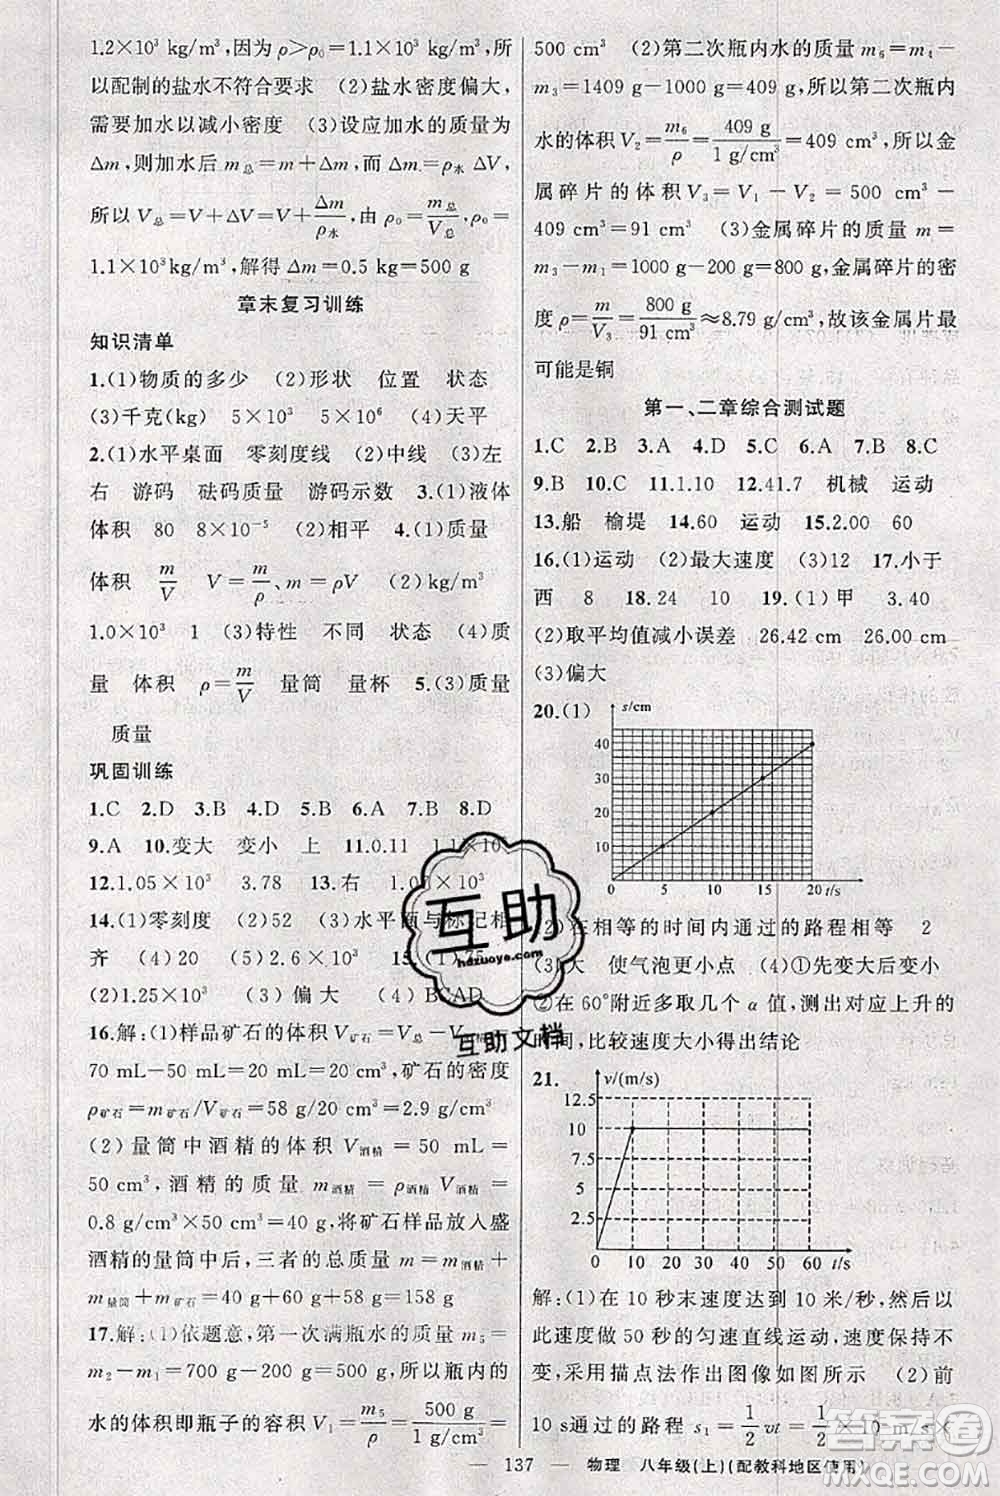 1.2×10³ kg/m³,因为 ρ＞ρ₀=1.1×10³ kg/m³,所
以配制的盐水不符合要求 (2)盐水密度偏大,
需要加水以减小密度 (3)设应加水的质量为
Δm,则加水后 m总=m+Δm,而 Δm=ρ水 ΔV,
所以 V总=V+ΔV=V+Δm/ρ水,由 ρ₀=m总/V总,ρ₀=
1.1×10³ kg/m³,解得 Δm=0.5 kg=500 g
章末复习训练
知识清单
1.(1)物质的多少 (2)形状 位置 状态
(3)千克(kg) 5×10³ 5×10⁶ (4)天平
2.(1)水平桌面 零刻度线 (2)中线 (3)左
右 游码 砝码质量 游码示数 3.(1)液体
体积 80 8×10⁻⁵ (2)相平 4.(1)质量
体积 m/V V=m/ρ、m=ρV (2)kg/m³
1.0×10³ 1 (3)特性 不同 状态 (4)质
量 体积 ρ=m/V 量筒 量杯 5.(3)质量
质量
巩固训练
1.C 2.D 3.B 4.D 5.B 6.A 7.B 8.D
9.A 10.变大 变小 上 11.0.11 1.1×10³
12.1.05×10³ 3.78 13.右
14.(1)零刻度 (2)52 (3)水平面与标记相
齐 (4)20 (5)2.6×10³ 15.(1)75
(2)1.25×10³ (3)偏大 (4)BCAD
16.解:(1)样品矿石的体积 V矿石=V总-V
70 mL-50 mL=20 mL=20 cm³,矿石的密度
ρ矿石=m矿石/V矿石=58 g/20 cm³=2.9 g/cm³
(2)量筒中酒精的体积 V酒精=50 mL=
50 cm³,酒精的质量 m酒精=ρ酒精 V酒精=
0.8 g/cm³×50 cm³=40 g,将矿石样品放入盛
酒精的量筒中后,三者的总质量=m酒精+
m量筒+m矿石=40 g+60 g+58 g=158 g
17.解:(1)依题意,第一次满瓶水的质量 m₅=
m₂-m₁=700 g-200 g=500 g,所以瓶内的
水的体积即瓶子的容积 V₁=m₅/ρ=500 g/1 g/cm³=
500 cm³ (2)第二次瓶内水的质量 m₆=m₄-
m₃=1409 g-1000 g=409 g,所以第二次瓶内
水的体积 V₂=m₆/ρ=409 g/1 g/cm³=409 cm³,所以金
属碎片的体积 V₃=V₁-V₂=500 cm³-
409 cm³=91 cm³ (3)金属碎片的质量 m=
m₃-m₁=1000 g-200 g=800 g,金属碎片的密
度 ρ=m/V₃=800 g/91 cm³≈8.79 g/cm³,故该金属片最
可能是铜
第一、二章综合测试题
1.C 2.B 3.A 4.D 5.C 6.A 7.B 8.C
9.B 10.C 11.1.10 12.41.7 机械 运动
13.船 榆堤 14.60 运动 15.2.00 60
16.(1)运动 (2)最大速度 (3)12 17.小于
西 8 18.24 10 19.(1)甲 3.40
(2)取平均值减小误差 26.42 cm 26.00 cm
(3)偏大
20.(1)
s/cm
40
30
20
10
0 5 10 15 20 t/s
(2)在相等的时间内通过的路程相等 2
(3)大 使气泡更小点 (4)①先变大后变小
②在 60°附近多取几个 α 值,测出对应上升的
时间,比较速度大小得出结论
21.
v/(m/s)
12.5
10
7.5
5
2.5
0 10 20 30 40 50 60 t/s
解:(1)在 10 秒末速度达到 10 米/秒,然后以
此速度做 50 秒的匀速直线运动,速度保持不
变,采用描点法作出图像如图所示 (2)前
10 s通过的路程 s₁=1/2 vt=1/2×10 m/s×
— 137 — 物理 八年级(上)(配教科地区使用)
互助
hdzuoye.com
互助文档
答案圈
MXQE.COM